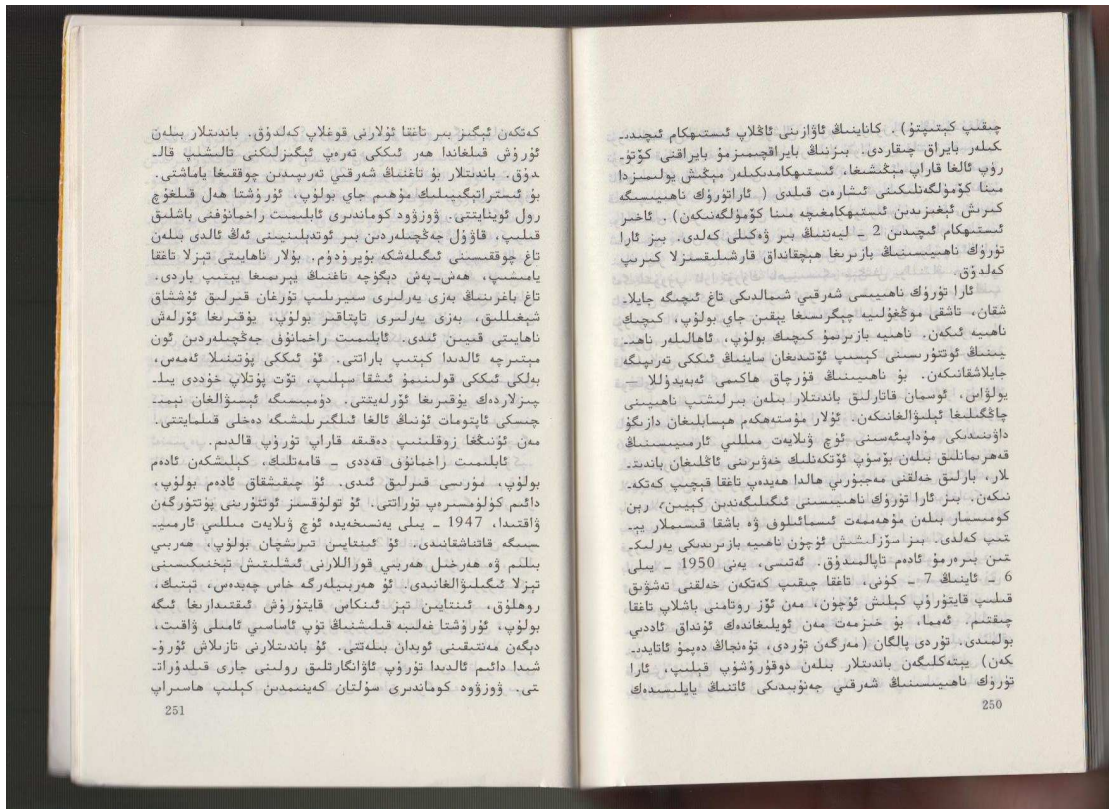 چىقىپ كېتىپتۇ) . كاناينىڭ ئاۋازىنى ئاڭلاپ ئىستىھكام ئىچىدىـ
كىلەر بايراق چىقاردى. بىزنىڭ بايراقچىمىزمۇ بايراقنى كۆتۈـ
رۈپ ئالغا قاراپ مېڭىشىغا، ئىستىھكامدىكىلەر مېڭىش يولىمىزدا
مىنا كۆمۈلگەنلىكىنى ئىشارەت قىلدى ( ئاراتۈرۈك ناھىيىسىگە
كىرىش ئېغىزىدىن ئىستىھكامغىچە مىنا كۆمۈلگەنىكەن) . ئاخىر
ئىستىھكام ئىچىدىن 2 ـ ليەننىڭ بىر ۋەكىلى كەلدى. بىز ئارا
تۈرۈك ناھىيىسىنىڭ بازىرىغا ھېچقانداق قارشىلىقسىزلا كىرىپ
كەلدۇق.
ئارا تۈرۈك ناھىيىسى شەرقىي شىمالدىكى تاغ ئىچىگە جايلاـ
شقان، تاشقى موڭغۇلىيە چېگرىسىغا يېقىن جاي بولۇپ، كىچىك
ناھىيە ئىكەن. ناھىيە بازىرىمۇ كىچىك بولۇپ، ئاھالىلەر ناھىـ
يىنىڭ ئوتتۇرىسىنى كېسىپ ئۆتىدىغان ساينىڭ ئىككى تەرىپىگە
جايلاشقانىكەن. بۇ ناھىيىنىڭ قورچاق ھاكىمى ئەبەيدۇللا —
يولۋاس، ئوسمان قاتارلىق باندىتلار بىلەن بىرلىشىپ ناھىيىنى
چاڭگىلىغا ئېلىۋالغانىكەن. ئۇلار مۇستەھكەم ھېسابلىغان دازىگۇ
داۋىنىدىكى مۇداپىئەسىنى ئۈچ ۋىلايەت مىللىي ئارمىيىسىنىڭ
قەھرىمانلىق بىلەن بۆسۈپ ئۆتكەنلىك خەۋىرىنى ئاڭلىغان باندىتـ
لار، بارلىق خەلقنى مەجبۇرىي ھالدا ھەيدەپ تاغقا قېچىپ كەتكەـ
نىكەن. بىز ئارا تۈرۈك ناھىيىسىنى ئىگىلىگەندىن كېيىن، رېن
كومىسسار بىلەن مۇھەممەت ئىسمائىلوف ۋە باشقا قىسىملار يېـ
تىپ كەلدى. بىز سۆزلىشىش ئۈچۈن ناھىيە بازىرىدىكى يەرلىكـ
تىن بىرەرمۇ ئادەم تاپالمىدۇق. ئەتىسى، يەنى 1950 ـ يىلى
6 ـ ئاينىڭ 7 ـ كۈنى، تاغقا چىقىپ كەتكەن خەلقنى تەشۋىق
قىلىپ قايتۇرۇپ كېلىش ئۈچۈن، مەن ئۆز روتامنى باشلاپ تاغقا
چىقتىم. ئەمما، بۇ خىزمەت مەن ئويلىغاندەك ئۇنداق ئاددىي
بولمىدى. تۇردى پالگان (مەرگەن تۇردى، تۈەنجاڭ دەپمۇ ئاتايدىـ
كەن) يېتەكلىگەن باندىتلار بىلەن دوقۇرۇشۇپ قېلىپ، ئارا
تۈرۈك ناھىيىسىنىڭ شەرقىي جەنۇبىدىكى ئاتنىڭ يايلىسىدەك
250
كەتكەن ئېگىز بىر تاغقا ئۇلارنى قوغلاپ كەلدۇق. باندىتلار بىلەن
ئۇرۇش قىلغاندا ھەر ئىككى تەرەپ ئېگىزلىكنى تالىشىپ قالـ
دۇق. باندىتلار بۇ تاغنىڭ شەرقىي تەرىپىدىن چوققىغا ياماشتى.
بۇ ئىستراتېگىيىلىك مۇھىم جاي بولۇپ، ئۇرۇشتا ھەل قىلغۇچ
رول ئوينايتتى. ۋوزۋود كوماندىرى ئابلىمىت راخمانوفنى باشلىق
قىلىپ، قاۋۇل جەڭچىلەردىن بىر ئوتدېلىنىيىنى ئەڭ ئالدى بىلەن
تاغ چوققىسىنى ئىگىلەشكە بۇيرۇدۇم. بۇلار ناھايىتى تېزلا تاغقا
يامىشىپ، ھەش-پەش دېگۈچە تاغنىڭ يېرىمىغا يېتىپ باردى.
تاغ باغرىنىڭ بەزى يەرلىرى سىيرىلىپ تۇرغان قىرلىق ئۇششاق
شېغىللىق، بەزى يەرلىرى تاپتاقىر بولۇپ، يۇقىرىغا ئۆرلەش
ناھايىتى قىيىن ئىدى. ئابلىمىت راخمانوف جەڭچىلەردىن ئون
مېتىرچە ئالدىدا كېتىپ باراتتى. ئۇ ئىككى پۇتىنىلا ئەمەس،
بەلكى ئىككى قولىنىمۇ ئىشقا سېلىپ، تۆت پۇتلاپ خۇددى يىلـ
پىزلاردەك يۇقىرىغا ئۆرلەيتتى. دۈمبىسىگە ئېسىۋالغان نېمىـ
چىسكى ئاپتومات ئۇنىڭ ئالغا ئىلگىرىلىشىگە دەخلى قىلمايتتى.
مەن ئۇنىڭغا زوقلىنىپ دەقىقە قاراپ تۇرۇپ قالدىم.
ئابلىمىت راخمانوف قەددى ـ قامەتلىك، كېلىشكەن ئادەم
بولۇپ، مۇرىسى قىرلىق ئىدى. ئۇ چىقىشقاق ئادەم بولۇپ،
دائىم كۈلۈمسىرەپ تۇراتتى. ئۇ تولۇقسىز ئوتتۇرىنى پۈتتۈرگەن
ۋاقتىدا، 1947 ـ يىلى يەنسىخەيدە ئۈچ ۋىلايەت مىللىي ئارمىيىـ
سىگە قاتناشقانىدى. ئۇ ئىنتايىن تىرىشچان بولۇپ، ھەربىي
بىلىم ۋە ھەرخىل ھەربىي قوراللارنى ئىشلىتىش تېخنىكىسىنى
تېزلا ئىگىلىۋالغانىدى. ئۇ ھەربىيلەرگە خاس چەبدەس، تېتىك،
روھلۇق، ئىنتايىن تېز ئىنكاس قايتۇرۇش ئىقتىدارىغا ئىگە
بولۇپ، ئۇرۇشتا غەلىبە قىلىشنىڭ تۈپ ئاساسىي ئامىلى ۋاقىت،
دېگەن مەنتىقىنى ئوبدان بىلەتتى. ئۇ باندىتلارنى تازىلاش ئۇرۇـ
شىدا دائىم ئالدىدا تۇرۇپ ئاۋانگارتلىق رولىنى جارى قىلدۇراتـ
تى. ۋوزۋود كوماندىرى سۇلتان كەينىمدىن كېلىپ ھاسىراپ
251